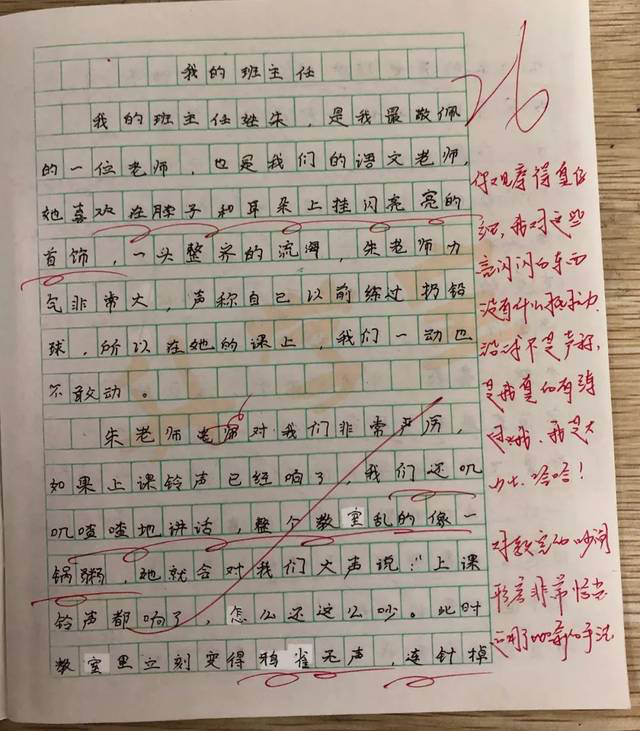 我的班主任
26
我的班主任姓朱，是我最敬佩
的一位老师，也是我们的语文老师，
她喜欢在脖子和耳朵上挂闪亮亮的
首饰，一头整齐的流海，朱老师力
气非常大，声称自己以前练过扔铅
球，所以在她的课上，我们一动也
不敢动。
朱老师老师对我们非常严厉，
如果上课铃声已经响了，我们还叽
叽喳喳地讲话，整个教室乱的像一
锅粥，她就会对我们大声说：“上课
铃声都响了，怎么还这么吵。此时
教室里立刻变得鸦雀无声，连针掉
你观察得真仔
我对这些
亮闪闪的东西
没有什么抵抗力
不是声称，
是我真的有练
过哈哈！
对教室的吵闹
形容非常恰当
运用了比喻的手法